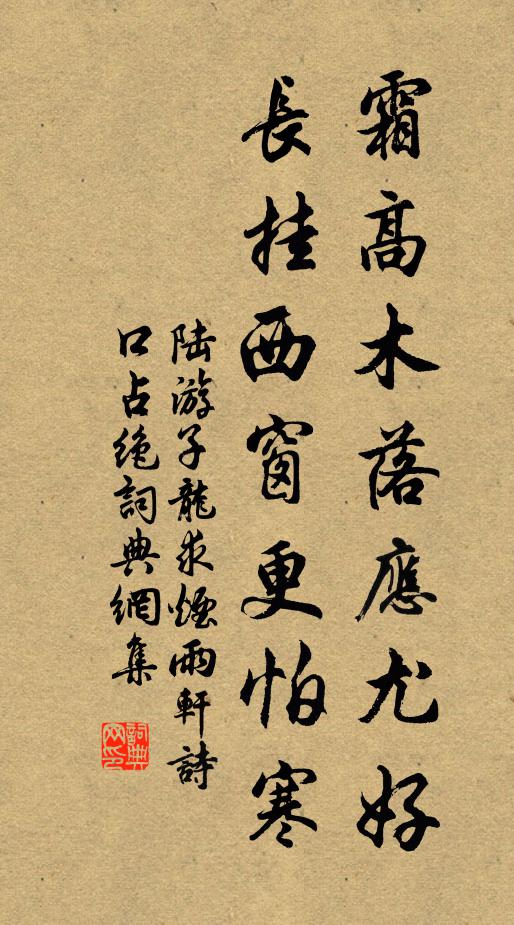 霜高木落應尤好
長挂西窗更怕寒
陆游子龍求煙雨軒詩
口占絶詞典網集
詞典
网印